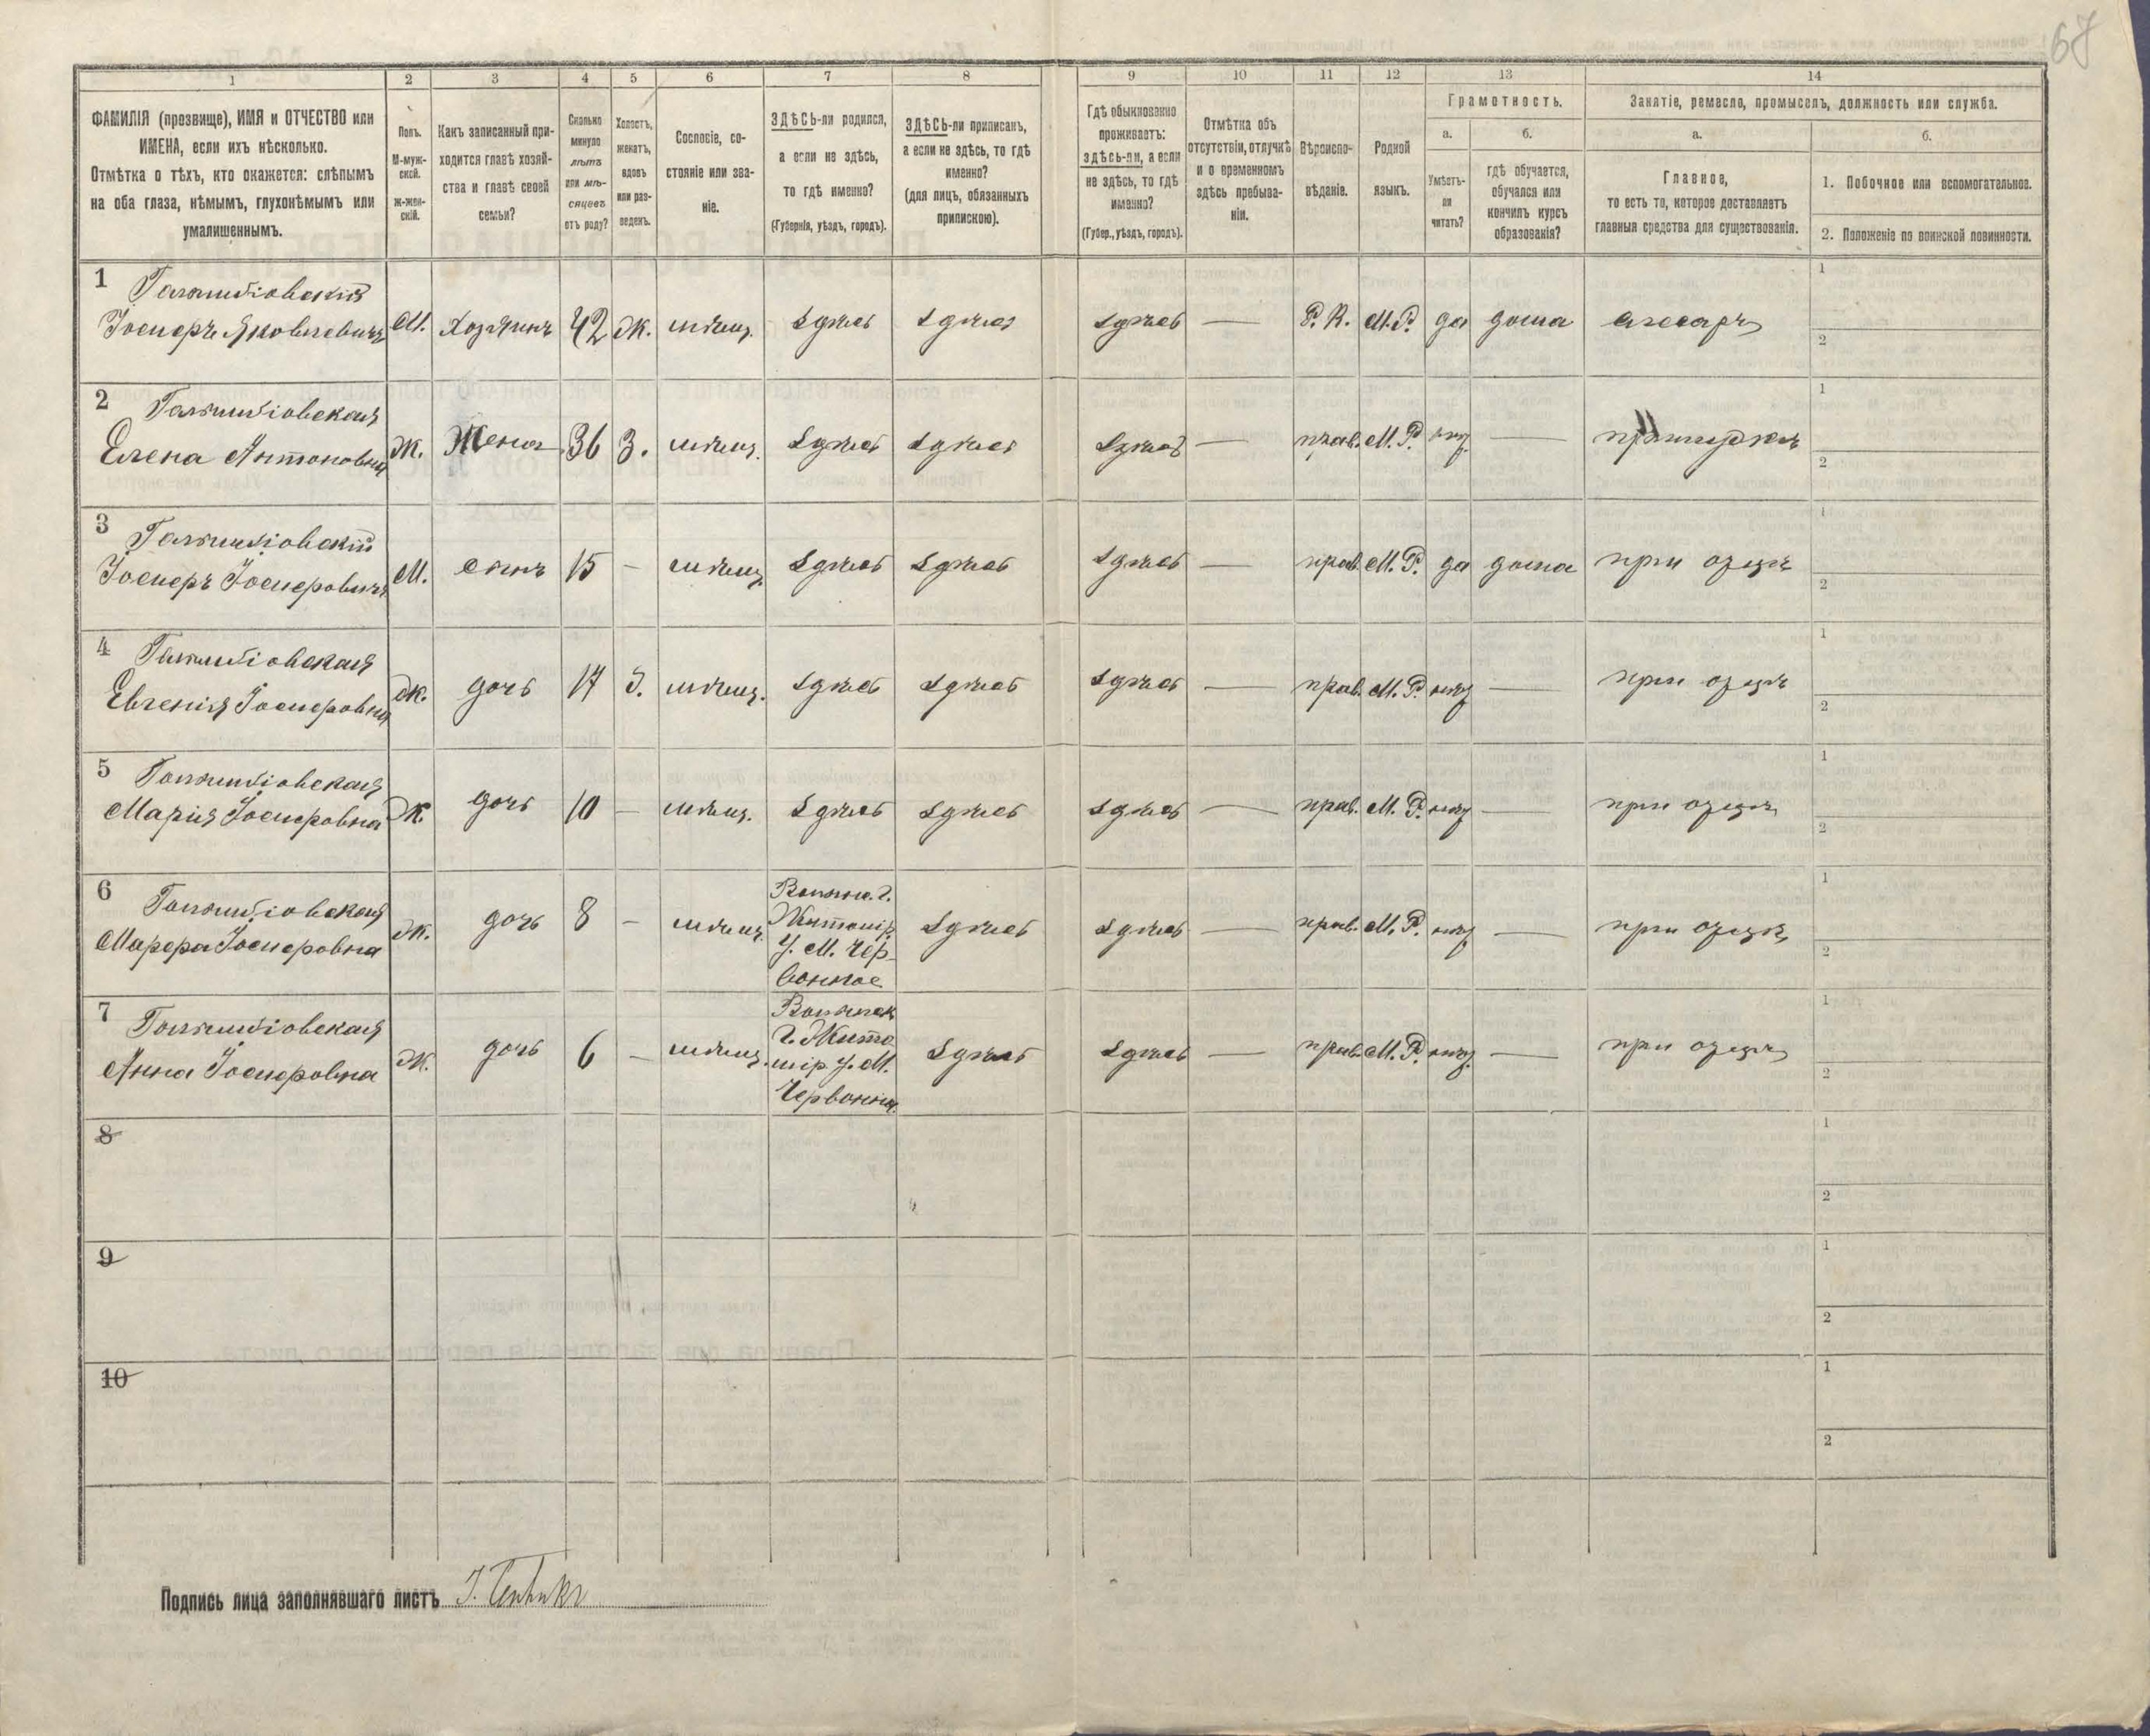 67
1 2 3 4 5 6 7 8 9 10 11 12 13 14
ФАМИЛІЯ (прозвище), ИМЯ и ОТЧЕСТВО или
ИМЕНА, если ихъ нѣсколько.
Отмѣтка о тѣхъ, кто окажется: слѣпымъ
на оба глаза, нѣмымъ, глухонѣмымъ или
умалишеннымъ.
Полъ.
М-муж-
ской.
ж-жен-
скій.
Какъ записанный при-
ходится главѣ хозяй-
ства и главѣ своей
семьи?
Сколько
минуло
лѣтъ
или мѣ-
сяцевъ
отъ роду?
Холостъ,
женатъ,
вдовъ
или раз-
веденъ.
Сословіе, со-
стояніе или зва-
ніе.
ЗДѢСЬ-ли родился,
а если не здѣсь,
то гдѣ именно?
(Губернія, уѣздъ, городъ).
ЗДѢСЬ-ли приписанъ,
а если не здѣсь, то гдѣ
именно?
(для лицъ, обязанныхъ
припискою).
Гдѣ обыкновенно
проживаетъ:
здѣсь-ли, а если
не здѣсь, то гдѣ
именно?
(Губер., уѣздъ, городъ).
Отмѣтка объ
отсутствіи, отлучкѣ
и о временномъ
здѣсь пребыва-
ніи.
Вѣроиспо-
вѣданіе.
Родной
языкъ.
Грамотность.
а.
Умѣетъ-
ли
читать?
б.
гдѣ обучается,
обучался или
кончилъ курсъ
образованія?
Занятіе, ремесло, промыселъ, должность или служба.
а.
Главное,
то есть то, которое доставляетъ
главныя средства для существованія.
б.
1. Побочное или вспомогательное.
2. Положеніе по воинской повинности.
1
Іосифъ Яковлевичъ М. Хозяинъ 42 Ж. мѣщ. здѣсь здѣсь здѣсь — Р. К. М.Р. да дома слесарь
1
2
2
Елена Антоновна Ж. Жена 36 З. мѣщ. здѣсь здѣсь здѣсь — прав. М. Р. нѣт —
1
2
3
Іосифъ Іосифовичъ М. сынъ 15 — мѣщ. здѣсь здѣсь здѣсь — прав. М. Р. да дома при отцѣ
1
2
4
Евгенія Іосифовна Ж. дочь 17 мѣщ. здѣсь здѣсь здѣсь — прав. М. Р. нѣт — при отцѣ
1
2
5
Марія Іосифовна Ж. дочь 10 — мѣщ. здѣсь здѣсь здѣсь — прав. М. Р. нѣт — при отцѣ
1
2
6
Марфа Іосифовна Ж. дочь 8 — мѣщ. Волын. г.
Житомір.
У. М. Чер-
вонное
здѣсь здѣсь — прав. М. Р. нѣт — при отцѣ
1
2
7
Анна Іосифовна Ж. дочь 6 — мѣщ. Волынск
г. Жито
мір у. М.
Червонн.
здѣсь здѣсь — прав. М. Р. нѣт — при отцѣ
1
2
8
1
2
9
1
2
10
1
2
Подпись лица заполнявшаго листъ